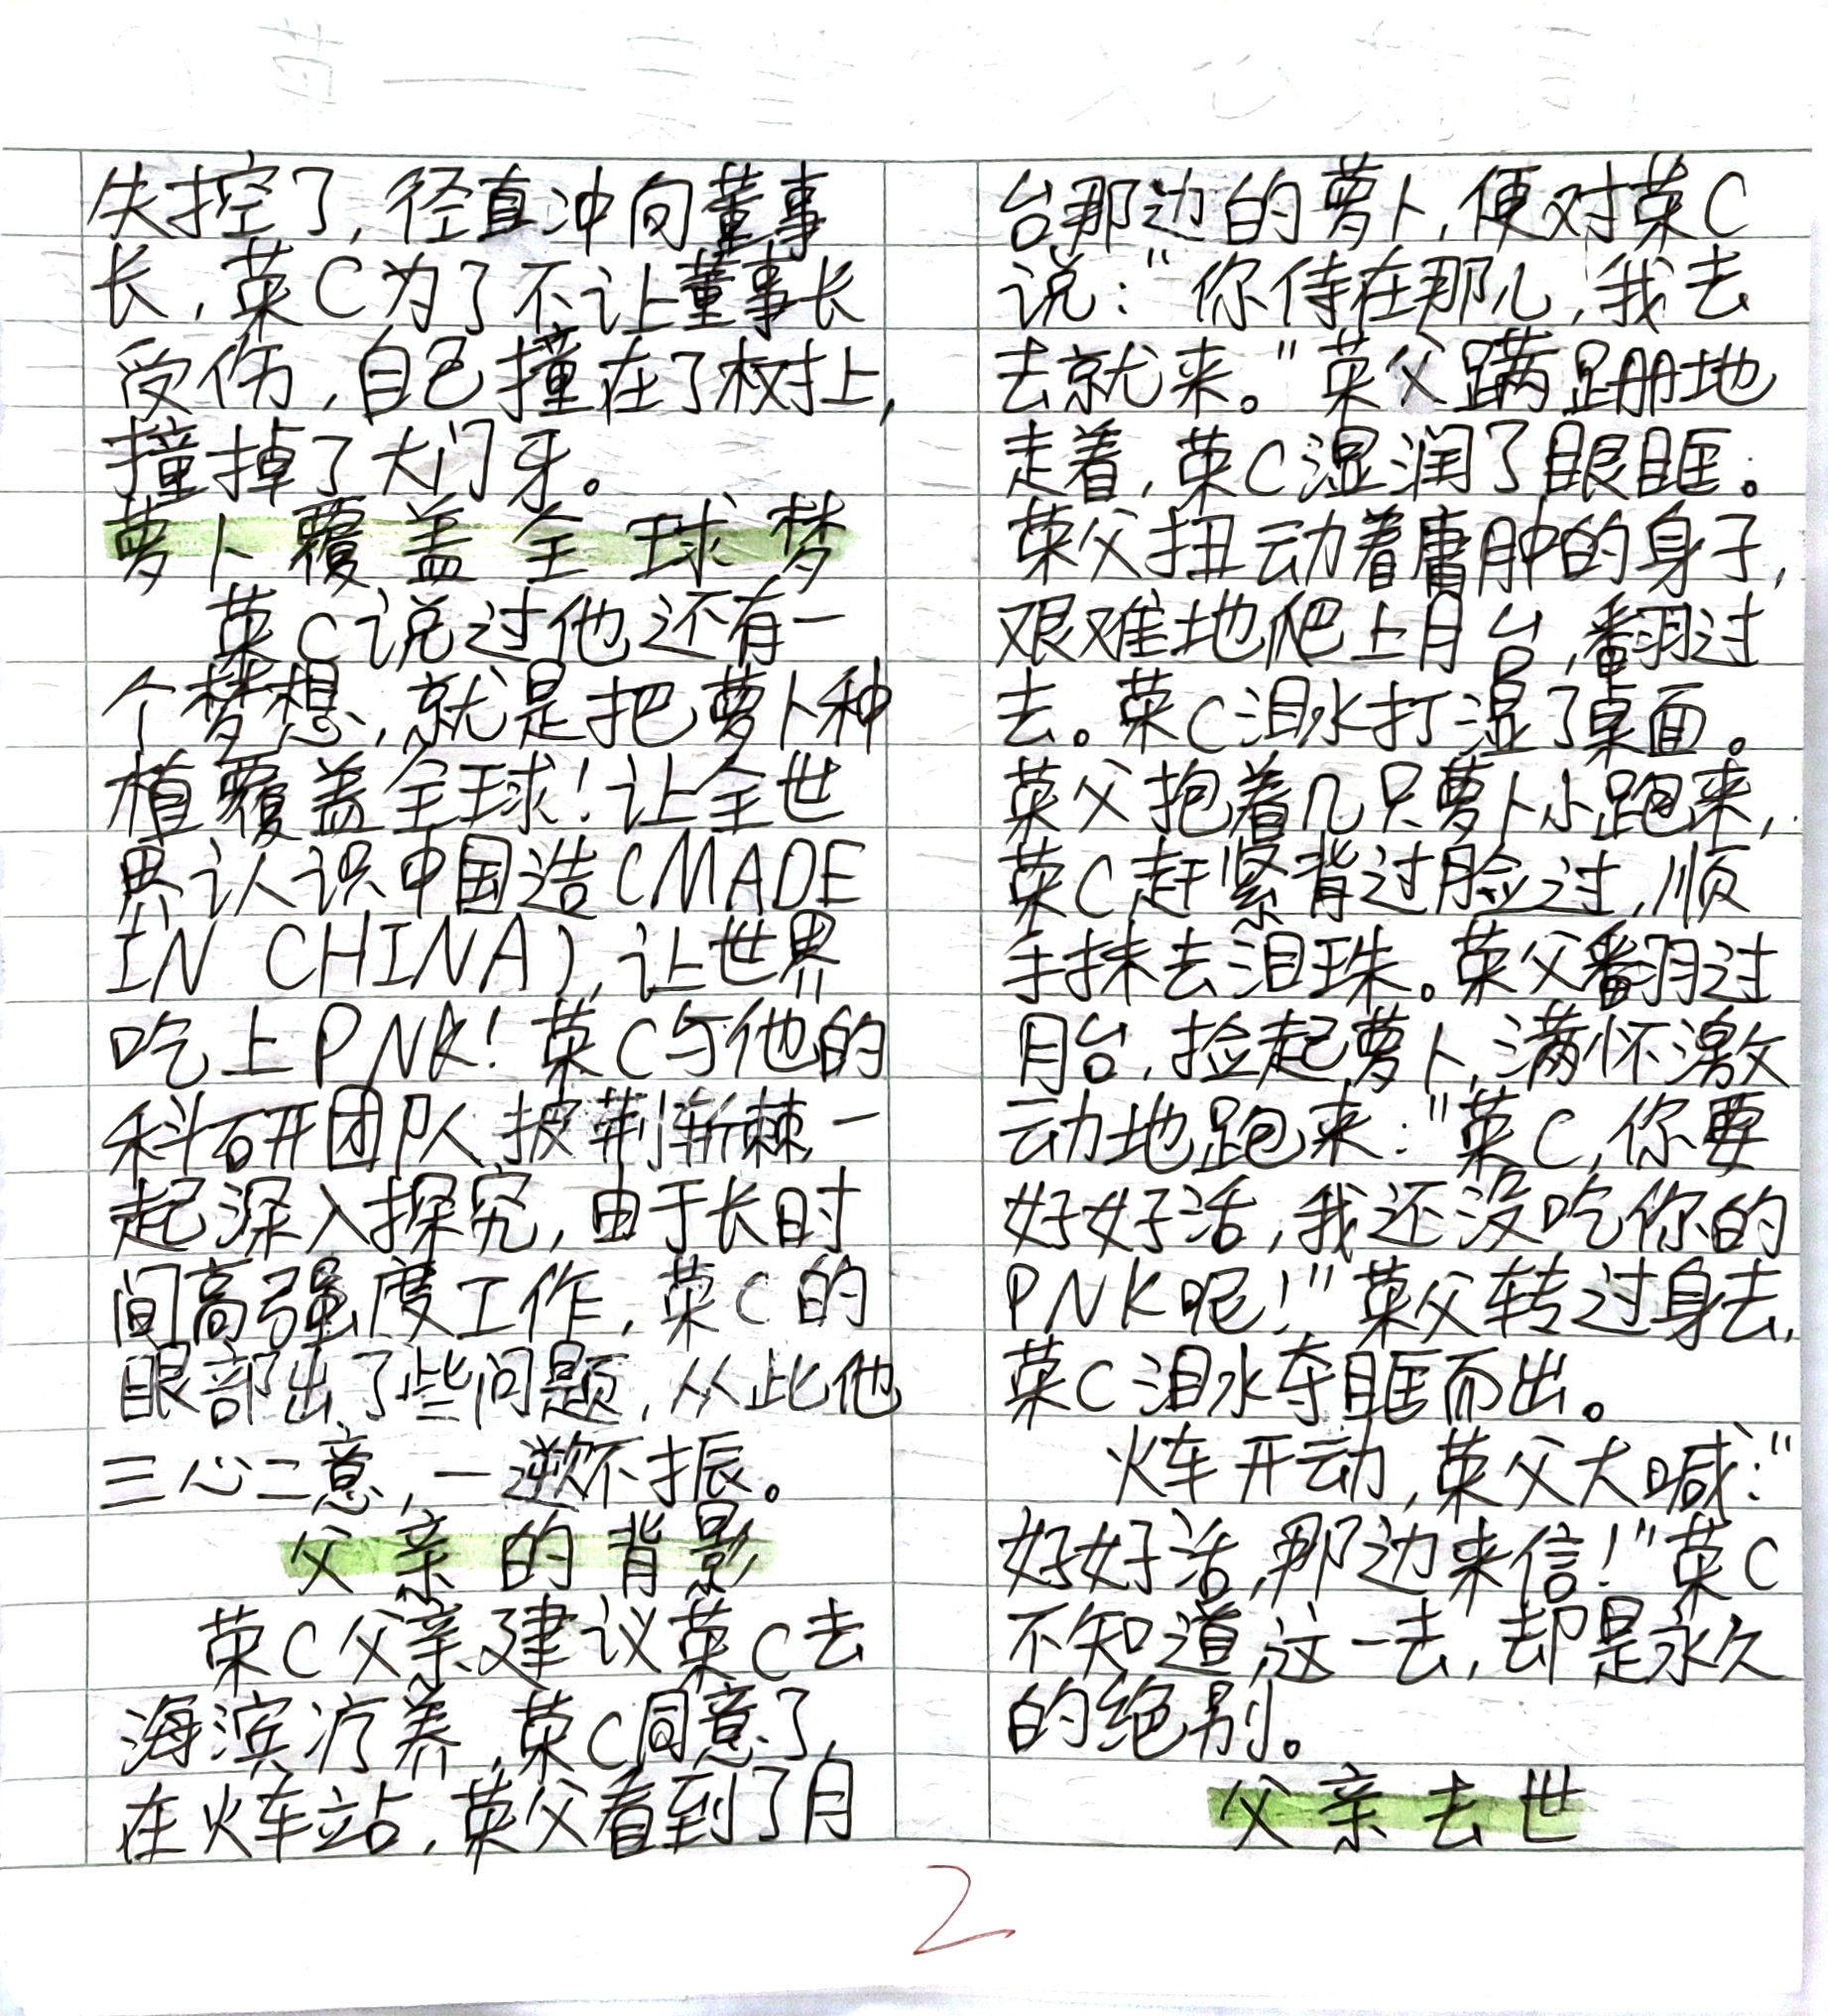 失控了，径直冲向董事
长，菜C为了不让董事长
受伤，自己撞在了树上，
撞掉了大门牙。
萝卜覆盖全球梦
菜C说过他还有一
个梦想，就是把萝卜种
植覆盖全球！让全世
界认识中国造（MADE
IN CHINA），让世界
吃上PNK！菜C与他的
科研团队披荆斩棘一
起深入探究，由于长时
间高强度工作，菜C的
眼部出了些问题，从此他
三心二意，一蹶不振。
父亲的背影
菜C父亲建议菜C去
海滨疗养，菜C同意了，
在火车站，菜父看到了月
台那边的萝卜，便对菜C
说：“你待在那儿，我去
去就来。”菜父蹒跚地
走着，菜C湿润了眼眶。
菜父扭动着臃肿的身子，
艰难地爬上月台，翻过
去。菜C泪水打湿了桌面。
菜父抱着几只萝卜小跑来，
菜C赶紧背过脸过，顺
手抹去泪珠。菜父翻过
月台，捡起萝卜，满怀激
动地跑来：“菜C，你要
好好活，我还没吃你的
PNK呢！”菜父转过身去，
菜C泪水夺眶而出。
火车开动，菜父大喊：“
好好活，那边来信！”菜C
不知道，这一去，却是永久
的绝别。
父亲去世
2